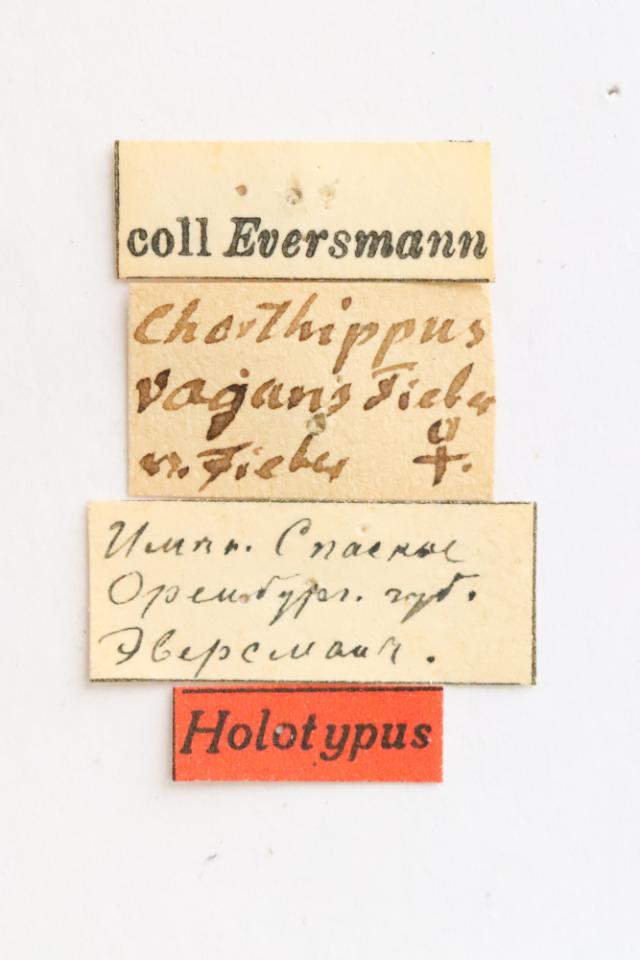 coll Eversmann
Chorthippus
vagans Fieber
n. Fieber ♀.
Имѣн. Спаское
Оренбург. губ.
Эверсманъ.
Holotypus